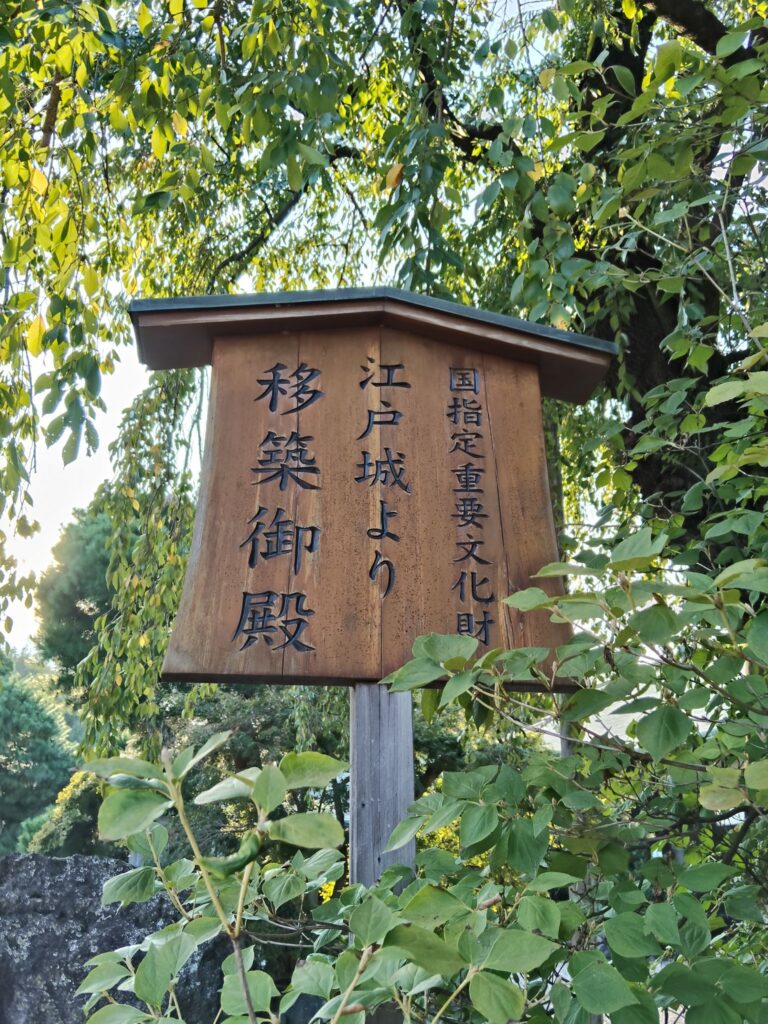 国指定重要文化財
江戸城より
移築御殿